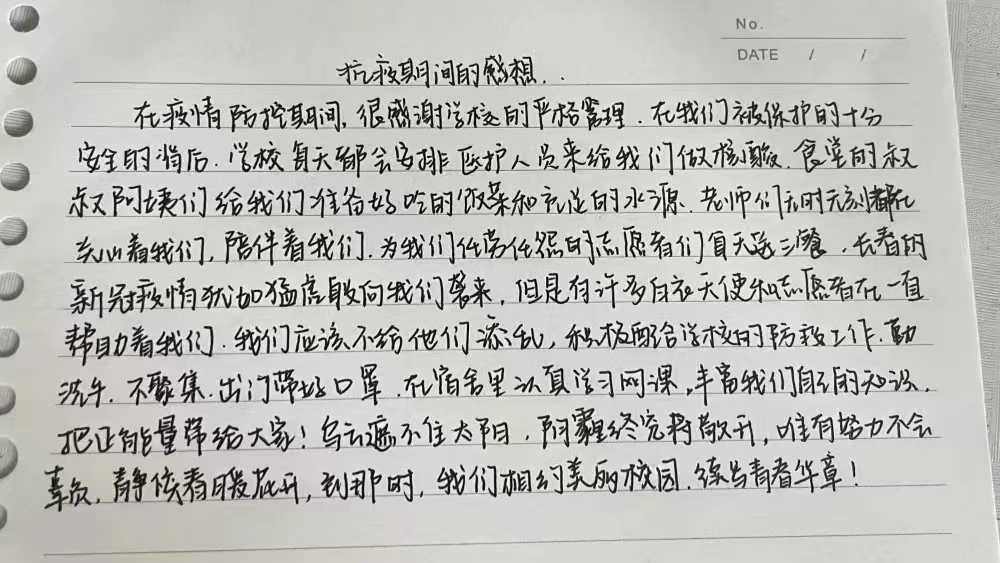 No.
DATE / /
抗疫期间的感想..
在疫情防控期间,很感谢学校的严格管理.在我们被保护的十分
安全的背后.学校每天都会安排医护人员来给我们做核酸.食堂的叔
叔阿姨们给我们准备好吃的饭菜和充足的水源.老师们无时无刻都在
关心着我们,陪伴着我们.为我们任劳任怨的志愿者们每天送三餐.长春的
新冠疫情犹如猛虎般向我们袭来,但是有许多白衣天使和志愿者在一直
帮助着我们.我们应该不给他们添乱,积极配合学校的防疫工作.勤
洗手.不聚集.出门带好口罩.在宿舍里认真学习网课,丰富我们自己的知识.
把正能量带给大家!乌云遮不住太阳.阴霾终究将散开,唯有努力不会
辜负.静候春暖花开,到那时,我们相约美丽校园.续写青春华章!